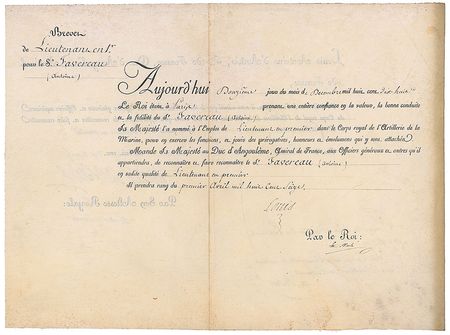 Brevet
de Lieutenant en 1er
pour le Sr. Favereau
(Antoine)
Aujourd'hui Deuxième jour du mois de Décembre mil huit cent dix huit
Le Roi étant à Paris prenant une entière confiance en la valeur, la bonne conduite
et la fidélité du Sr. Favereau (Antoine)
Sa Majesté l'a nommé à l'Emploi de Lieutenant en premier dans le Corps royal de l'Artillerie de la
Marine, pour en exercer les fonctions, et jouir des prérogatives, honneurs et émolumens qui y sont attachés.
Mande Sa Majesté au Duc d'Angoulême, Amiral de France, aux Officiers généraux et autres qu'il
appartiendra, de reconnaître et faire reconnaître le Sr. Favereau (Antoine)
en ladite qualité de Lieutenant en premier
Il prendra rang du premier Avril mil huit cent seize.
Louis
Par le Roi: